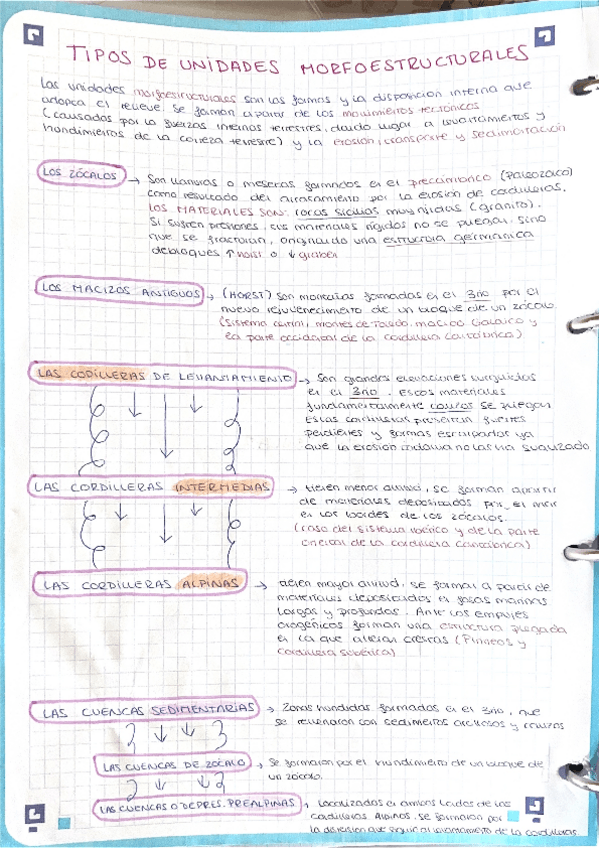 TIPOS DE UNIDADES MORFOESTRUCTURALES
Las unidades morfoestructurales son las formas y la disposición interna que
adopta el relieve. Se forman a partir de los movimientos tectónicos
(causados por la fuerzas internas terrestres, dando lugar a levantamientos y
hundimientos de la corteza terrestre) y la erosión, transporte y sedimentación
LOS ZÓCALOS → Son llanuras o mesetas formadas en el precámbrico (Paleozoico)
como resultado del arrasamiento por la erosión de cordilleras.
LOS MATERIALES SON: rocas silíceas muy rígidas (granito).
Si sufren presiones, sus materiales rígidos no se pliegan, sino
que se fracturan, originando una estructura germánica
de bloques ↑ horst o ↓ graben
LOS MACIZOS ANTIGUOS → (HORST) Son montañas formadas en el 3rio por el
nuevo rejuvenecimiento de un bloque de un zócalo.
(Sistema central, montes de Toledo, macizo Galaico y
en parte occidental de la cordillera cantábrica)
LAS CODILLERAS DE LEVANTAMIENTO → Son grandes elevaciones surgidas
en el 3rio. Estos materiales
fundamentalmente calizos se pliegan
Estas cordilleras presentan fuertes
pendientes y formas escarpadas ya
que la erosión todavía no las ha suavizado
LAS CORDILLERAS INTERMEDIAS → tienen menor altitud, se forman a partir
de materiales depositados por el mar
en los bordes de los zócalos.
(caso del sistema ibérico y de la parte
oriental de la cordillera cantábrica)
LAS CORDILLERAS ALPINAS → tienen mayor altitud, se forman a partir de
materiales depositados en fosas marinas
largas y profundas. Ante los empujes
orogénicos forman una estructura plegada
en la que alternan crestas (Pirineos y
cordillera subética)
LAS CUENCAS SEDIMENTARIAS → Zonas hundidas formadas en el 3rio, que
se rellenaron con sedimentos arcillosos y calizos
LAS CUENCAS DE ZÓCALO → Se formaron por el hundimiento de un bloque de
un zócalo.
LAS CUENCAS O DEPRES. PREALPINAS → Localizadas en ambos lados de las
cordilleras Alpinas. Se formaron por
la que siguió al levantamiento de la cordilleras